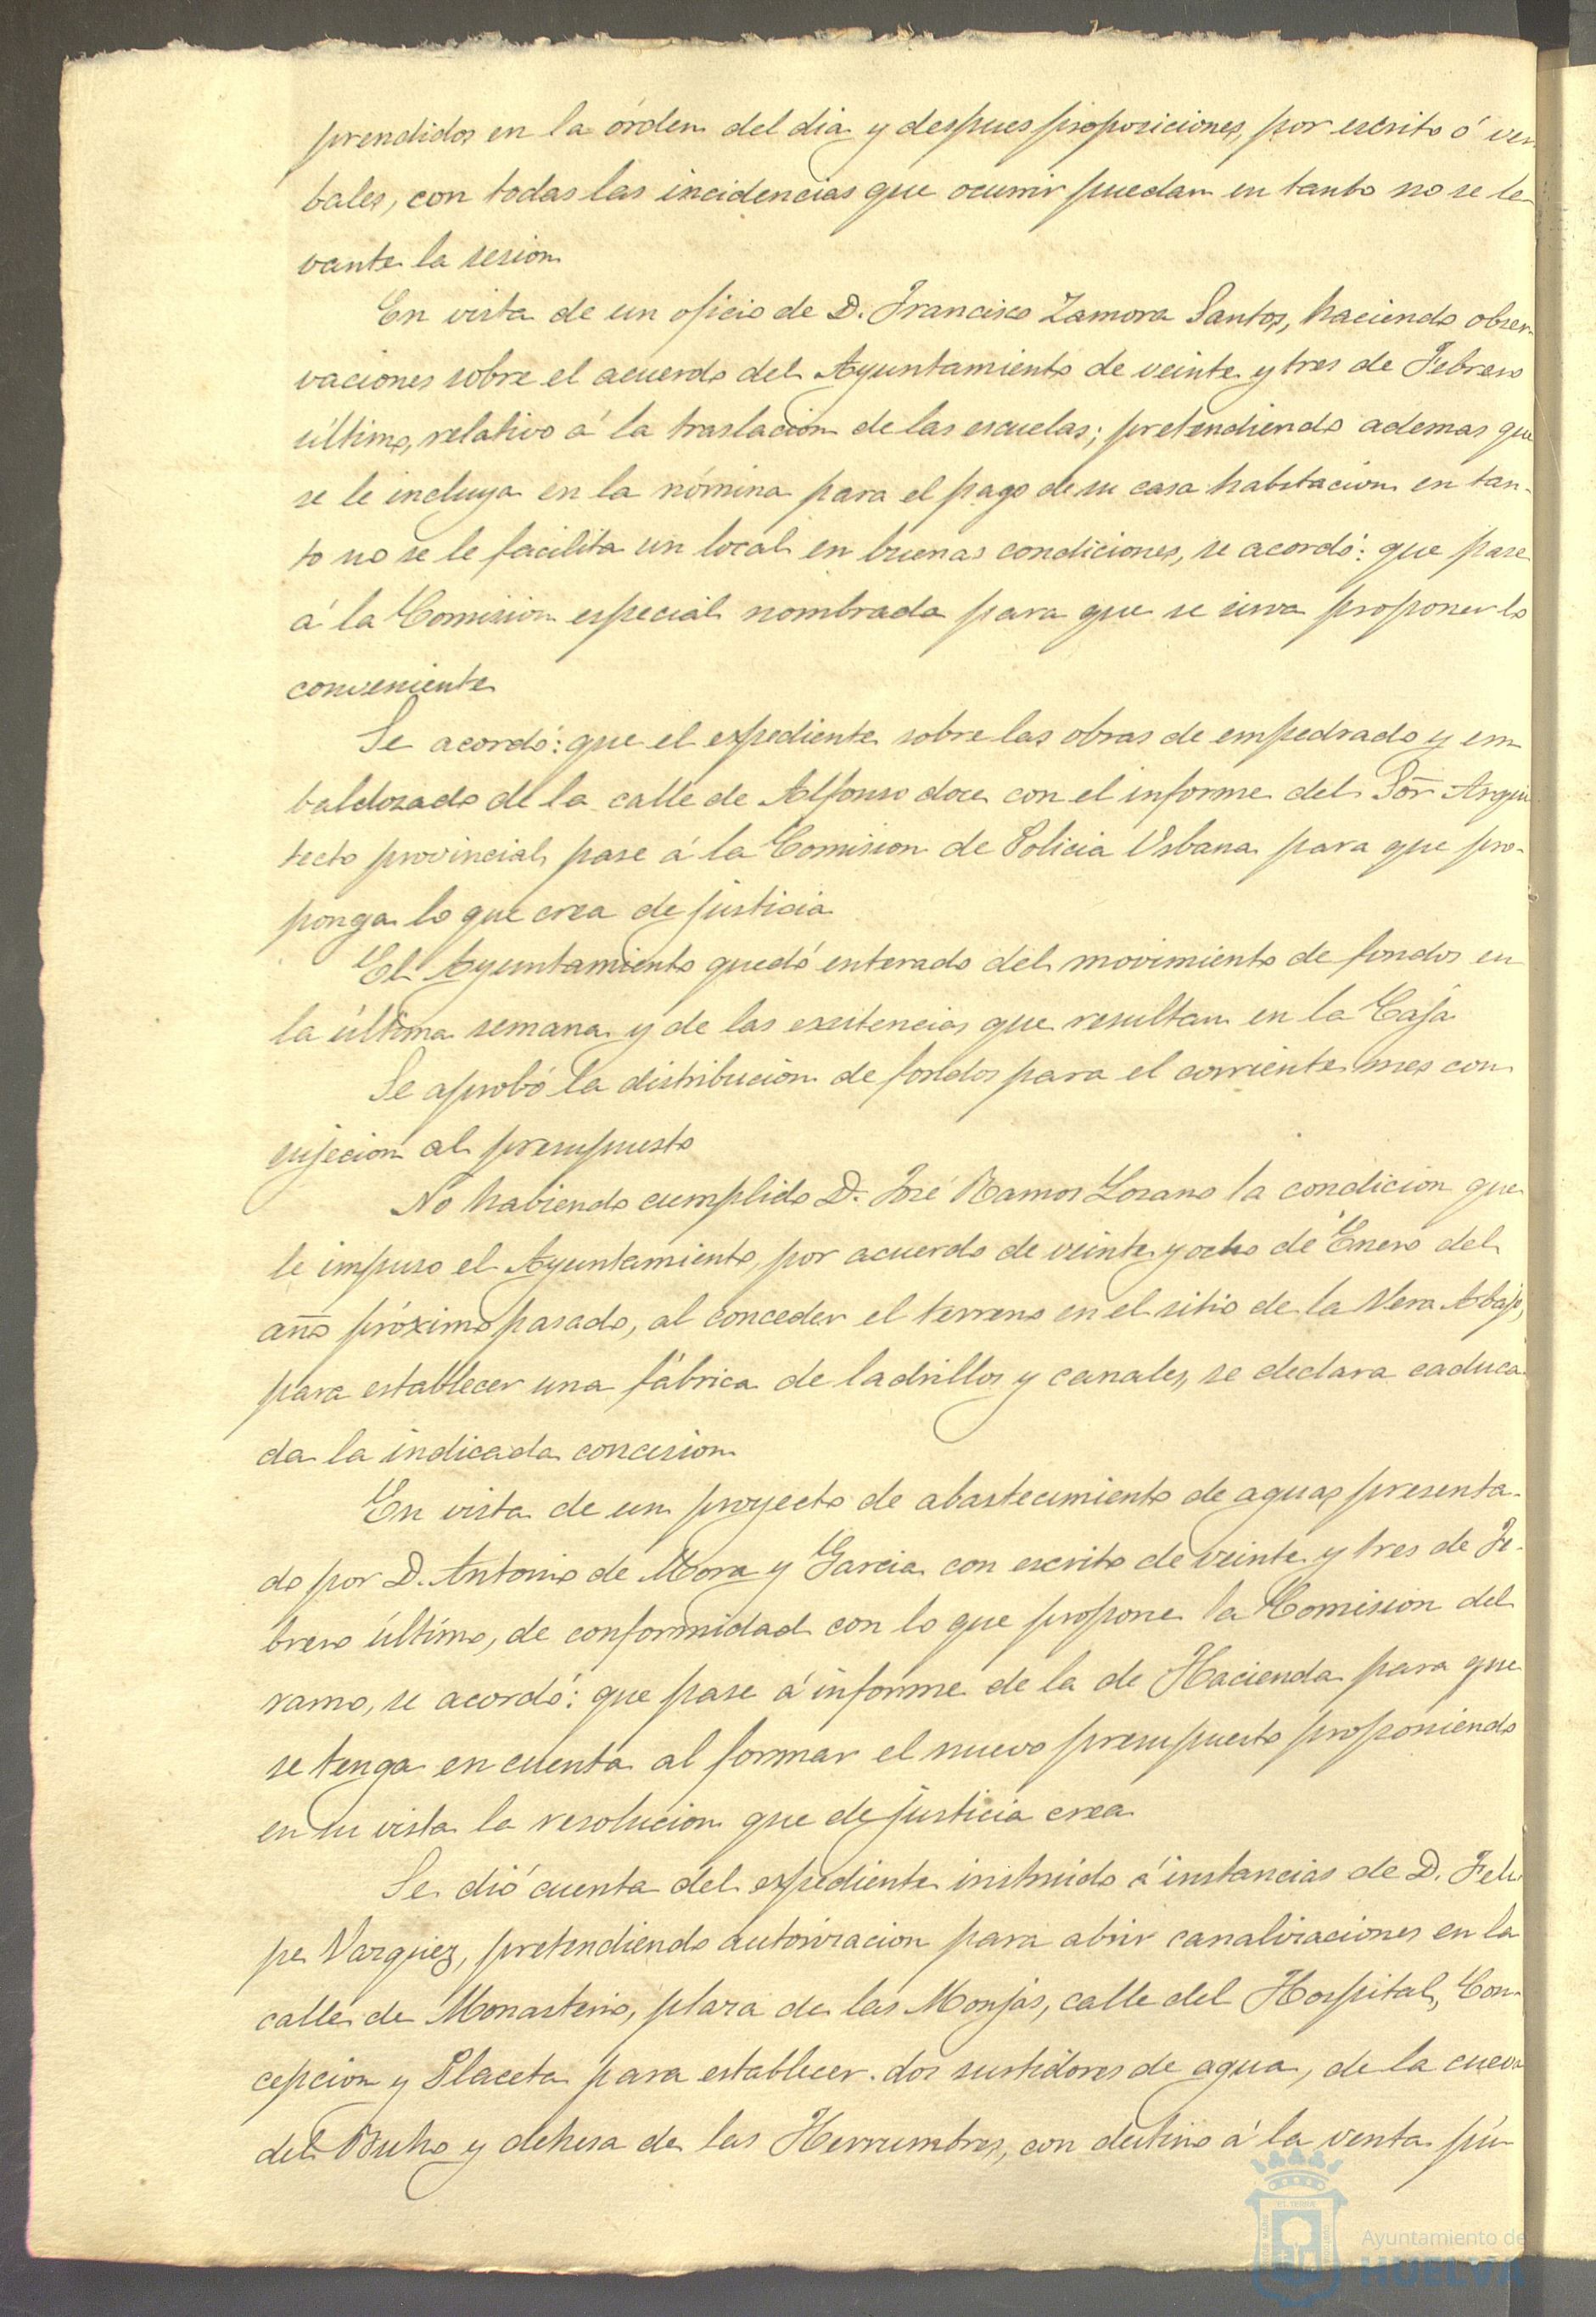 prendidos en la órden del dia y despues proposiciones, por escrito ó ver-
bales, con todas las incidencias que ocurrir puedan en tanto no se le-
vante la sesion
En vista de un oficio de D. Francisco Zamora Santos, haciendo obser-
vaciones sobre el acuerdo del Ayuntamiento de veinte y tres de Febrero
último, relativo á la traslacion de las escuelas; pretendiendo ademas que
se le incluya en la nómina para el pago de su casa habitacion en tan-
to no se le facilita un local en buenas condiciones, se acordó: que pase
á la Comision especial nombrada para que se sirva proponer lo
conveniente
Se acordó: que el expediente sobre las obras de empedrado y em
baldosado de la calle de Alfonso doce con el informe del Sor Arqui
tecto provincial, pase á la Comision de Policia Urbana para que pro-
ponga lo que crea de justicia
El Ayuntamiento quedó enterado del movimiento de fondos en
la última semana y de las exsitencias que resultan en la Caja
Se aprobó la distribucion de fondos para el corriente mes con
sujecion al presupuesto
No habiendo cumplido D. José Ramos Lozano la condicion que
le impuso el Ayuntamiento, por acuerdo de veinte y ocho de Enero del
año próximo pasado, al conceder el terreno en el sitio de la Vera Abajo,
para establecer una fábrica de ladrillos y canales, se declara caduca
da la indicada concesion
En vista de un proyecto de abastecimiento de aguas presenta-
do por D. Antonio de Mora y Garcia con escrito de veinte y tres de Fe-
brero último, de conformidad con lo que propone la Comision del
ramo, se acordó: que pase á informe de la de Hacienda para que
se tenga en cuenta al formar el nuevo presupuesto proponiendo
en su vista la resolucion que de justicia crea
Se dió cuenta del expediente instruido á instancias de D. Feli
pe Vazquez, pretendiendo autorizacion para abrir canalizaciones en la
calle de Monasterio, plaza de las Monjas, calle del Hospital, Con-
cepcion y Placeta para establecer dos surtidores de agua, de la cueva
del Buho y dehesa de las Herrumbres, con destino á la venta pú-
Ayuntamiento de
HUELVA